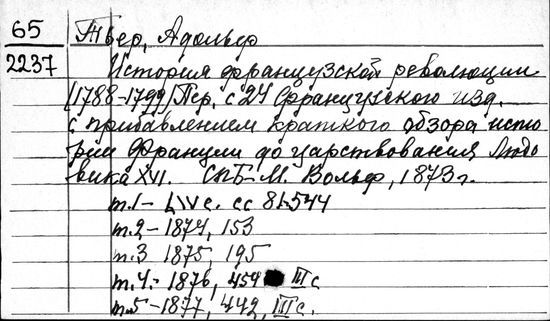 65
2237
Тьер, Адольф
История французской революции
[1788-1799] Пер. с 24 французского изд.
с прибавлением краткого обзора исто
рии Франции до царствования Людо
вика XVI. СПБ-М. Вольф, 1873г.
т.1- LIV с. сс 81-544
т.2-1874, 153
т.3 1875, 195
т.4.-1876, 454 III с
т.5-1877, 442, III с.